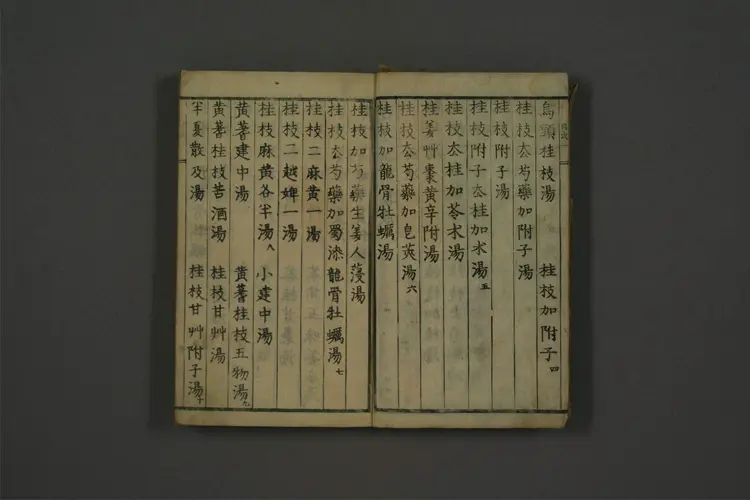 烏頭桂枝湯 桂枝加附子四
桂枝厺芍藥加附子湯
桂枝附子湯
桂枝附子厺桂加朮湯五
桂枝厺桂加苓朮湯
桂姜艸棗黃辛附湯
桂枝厺芍藥加皂莢湯六
桂枝加龍骨牡蠣湯
桂枝加芍藥生姜人薓湯
桂枝厺芍藥加蜀漆龍骨牡蠣湯七
桂枝二麻黃一湯
桂枝二越婢一湯
桂枝麻黃各半湯八 小建中湯
黃蓍建中湯 黃蓍桂枝五物湯九
黃蓍桂枝苦酒湯 桂枝甘艸湯
半夏散及湯 桂枝甘艸附子湯十